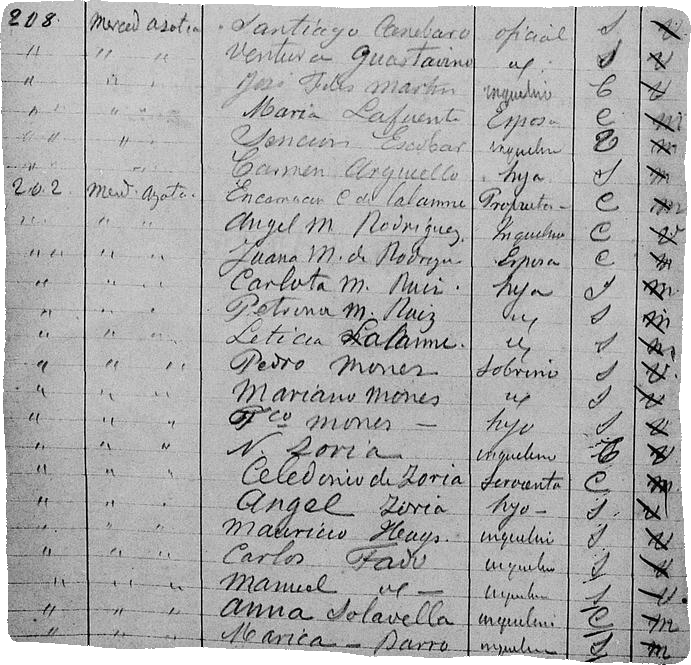 208. Merced azotea Santiago Canebaro oficial S V
" " " Ventura Guastavino id. S V
" " " José Feles Martin inquelino C V
" " " Maria Lafuente Esposa C m
" " " Escobar inquelino m
" " " Carmen Arguello hija S m
202. Merd. Azota. Encarnacion C de Lalanne Propieta- C m
" " " Angel M Rodriguez. Inquelino C V
" " " Juana M. de Rodrigu Esposa C m
" " " Carlota M. Ruiz. hija S m
" " " Petrona M. Ruiz id S m
" " " Leticia Lalanne. id S m
" " " Pedro Mones Sobrino S V.
" " " Mariano Mones id S V
" " " Fco Mones — hijo S V
" " " N. Zoria inquelino C V
" " " Celedonio de Zoria Servienta C m
" " " Angel Zoria hijo — S V
" " " Mauricio Hays inquelini S V
" " " Carlos inquelin S V
" " " Manuel id — inquelin S V
" " " Anna Solavella inquelini C m
" " " Marica — Parro inquelin S m